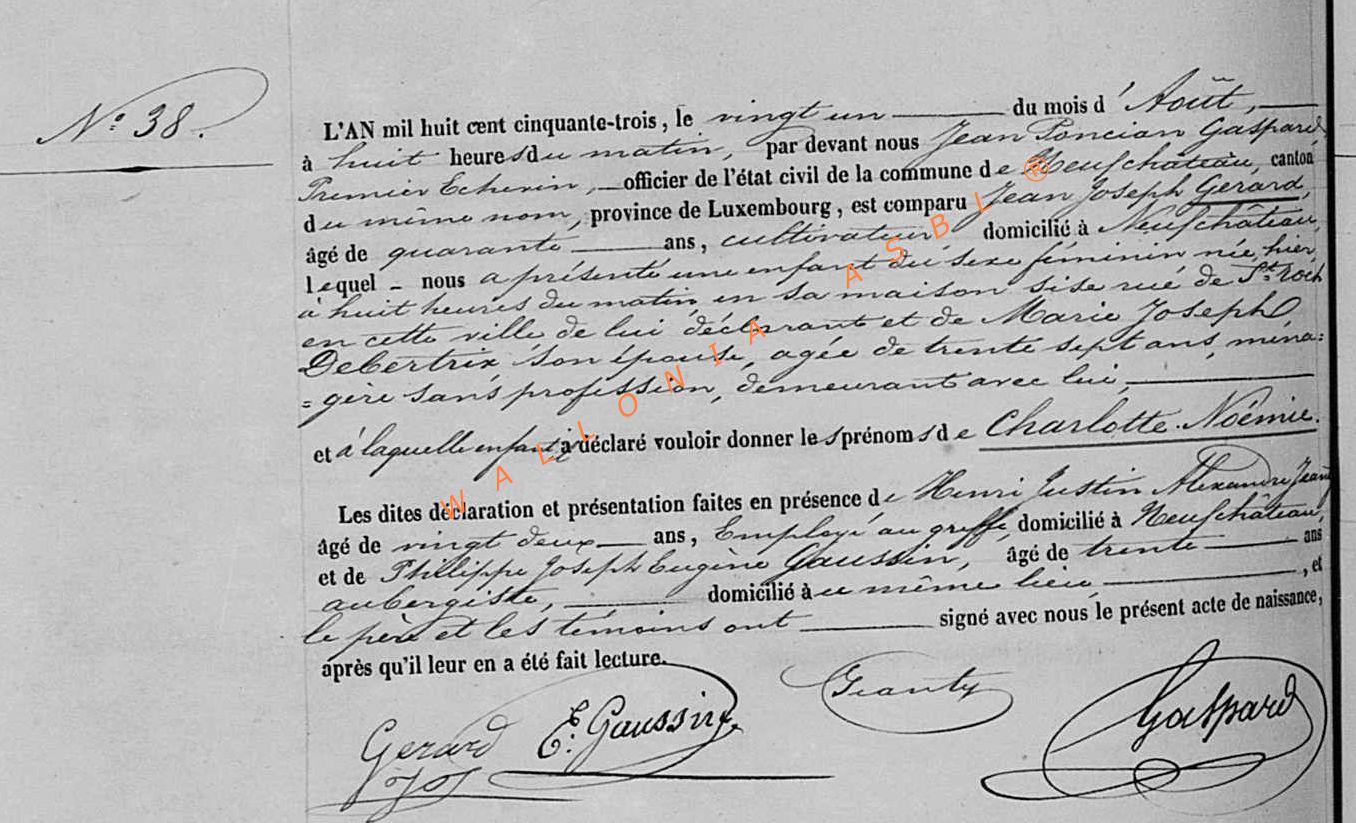 N° 38.
L'AN mil huit cent cinquante-trois, le vingt un du mois d'Août,
à huit heures du matin, par devant nous Jean Poncian Gaspard
Premier Echevin, officier de l'état civil de la commune de Neufchâteau, canton
du même nom, province de Luxembourg, est comparu Jean Joseph Gerard,
âgé de quarante ans, cultivateur domicilié à Neufchâteau,
lequel - nous a présenté une enfant du sexe féminin née, hier,
à huit heures du matin en sa maison sise rue de St. Roch
en cette ville de lui déclarant et de Marie Joseph
Debertrix son épouse, agée de trente sept ans, ména=
=gère sans profession, demeurant avec lui,
et à laquelle enfant il a déclaré vouloir donner les prénoms de Charlotte Noëmie.
Les dites déclaration et présentation faites en présence de Henri Justin Alexandre Jeanty
âgé de vingt deux ans, Employé au greffe, domicilié à Neufchâteau,
et de Phillippe Joseph Eugène Gaussin, âgé de trente ans
aubergiste, domicilié à ce même lieu, et
le père et les témoins ont signé avec nous le présent acte de naissance,
après qu'il leur en a été fait lecture.
Gerard
E. Gaussin
Jeanty
Gaspard
WALLONIA ASBL ®